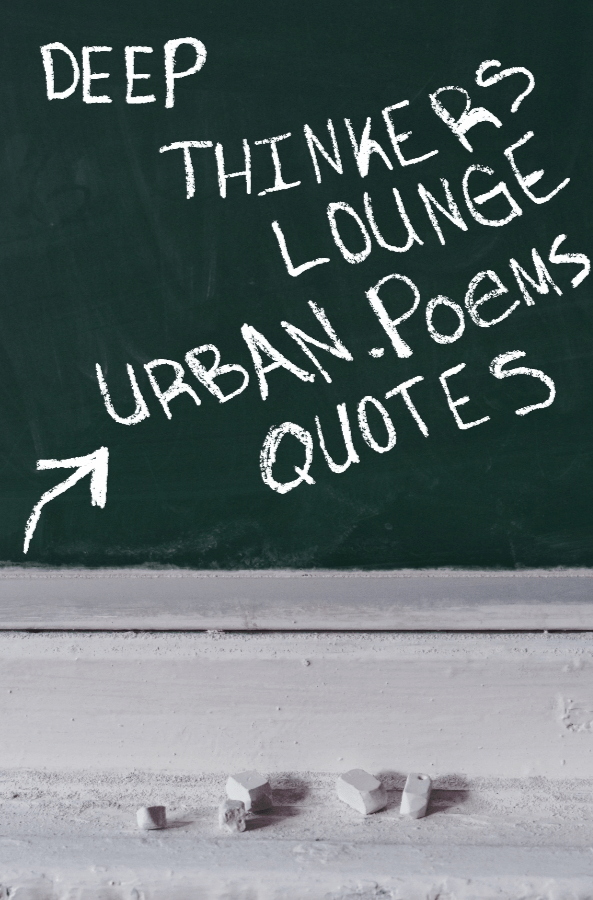 DEEP
THINKERS
LOUNGE
URBAN.POEMS
QUOTES